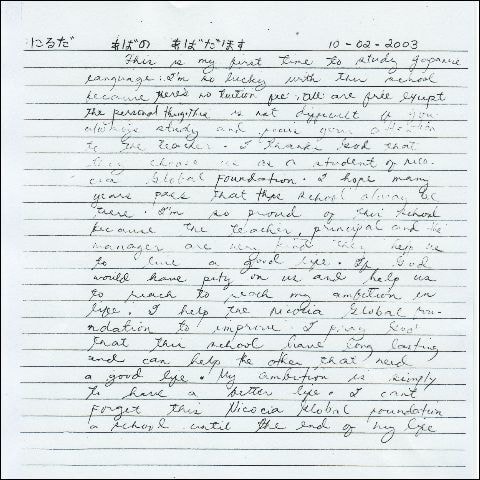 にるだ あばの あばだほす 10-02-2003
This is my first time to study Japanese
language. I'm so lucky with this school
because there's no tuition fee, all are free except
the personal things. This is not difficult if you
always study and pour your attention
to the teacher. I thanks God that
they choose us as a student of nico-
cia Global Foundation. I hope many
years pass that this school always be
there. I'm so proud of this school
because the teacher, principal and the
manager are very kind they help me
to live a good life. If God
would have pity on us and help us
to reach to reach my ambition in
life. I help the nicocia Global Fou-
ndation to improve. I pray God
that this school have long lasting
and can help the other that need
a good life. My ambition is simply
to have a better life. I can't
Forget this Nicocia Global Foundation
a school until the end of my life